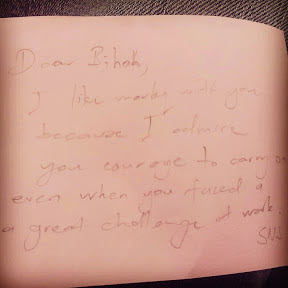 Dear Bihah,
I like working with you
because I admire
you courage to carry on
even when you faced a
a great challenge at work.